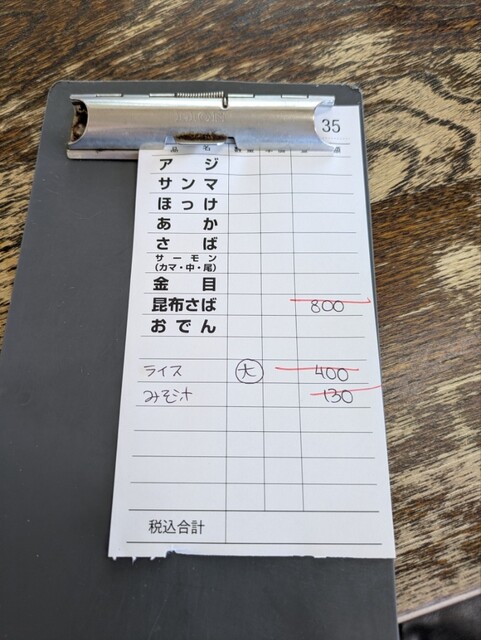 35
品 名
アジ
サンマ
ほっけ
あか
さば
サーモン
(カマ・中・尾)
金目
昆布さば 800
おでん
ライス 大 400
みそ汁 130
税込合計